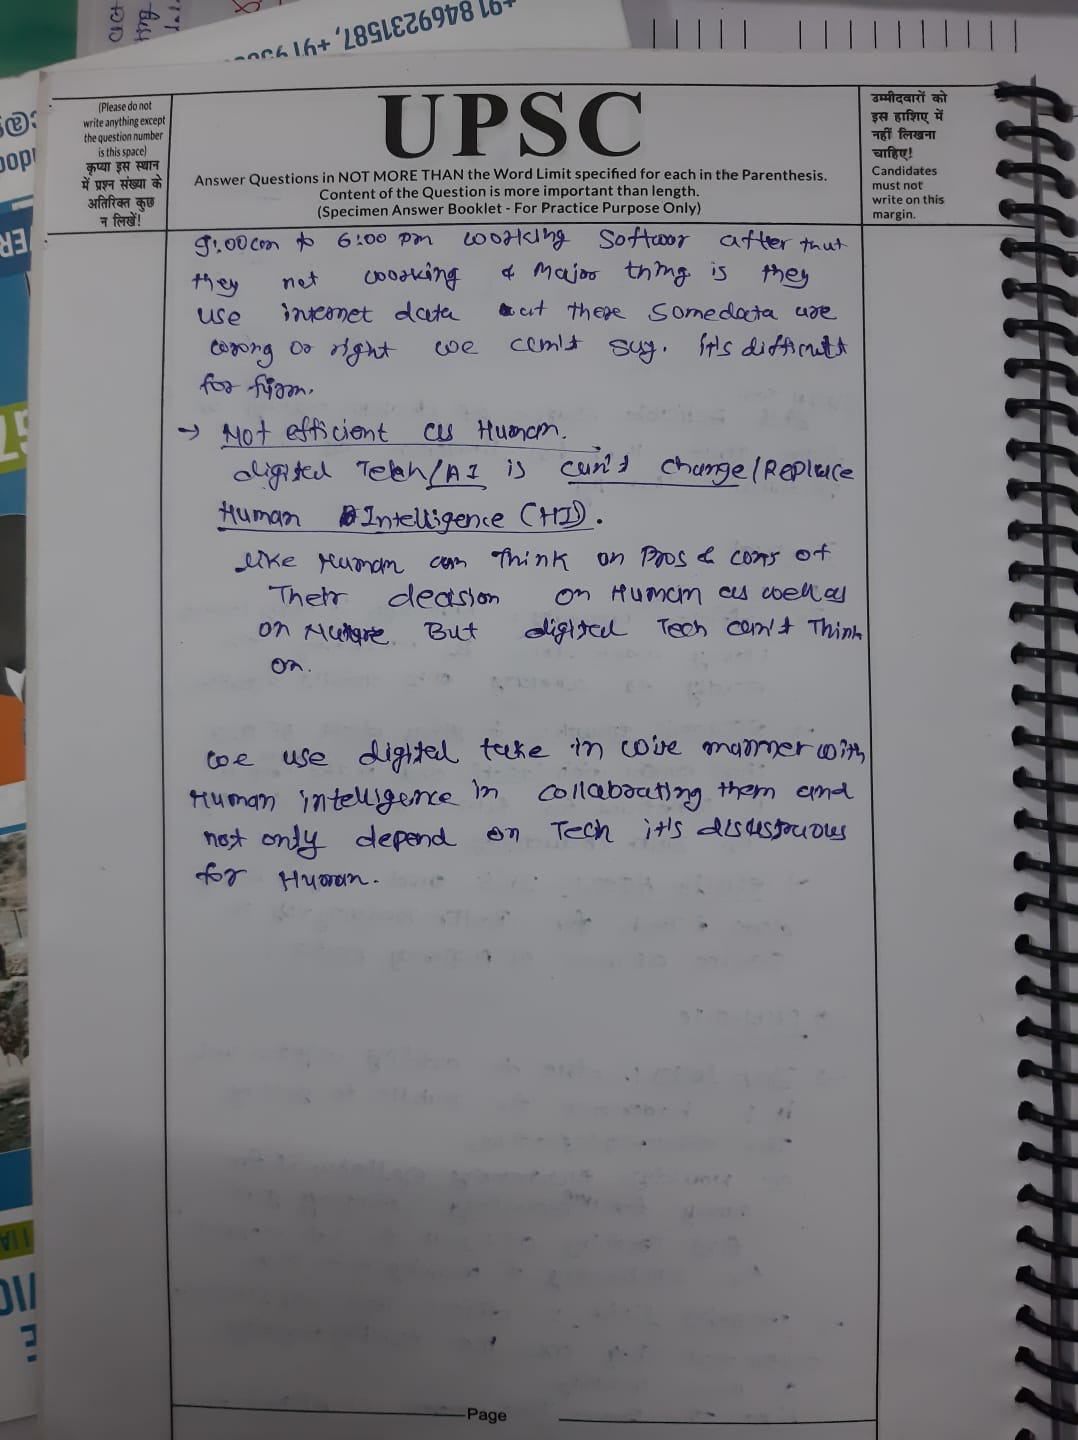 +91 8469231587, +91 93
(Please do not
write anything except
the question number
is this space)
कृप्या इस स्थान
में प्रश्न संख्या के
अतिरिक्त कुछ
न लिखें!
UPSC
Answer Questions in NOT MORE THAN the Word Limit specified for each in the Parenthesis.
Content of the Question is more important than length.
(Specimen Answer Booklet - For Practice Purpose Only)
उम्मीदवारों को
इस हाशिए में
नहीं लिखना
चाहिए!
Candidates
must not
write on this
margin.
to 6:00 pm woorking Softwor after that
they not woorking & Major thing is they
use internet data but there Somedata are
wrong or right we can't say. it's difficult
for firom.
→ Not efficient as Human.
digital Tech/AI is can't change/Replace
Human Intelligence (HI).
like Human can Think on Pros & cons of
Their decision on Human as well as
on Nature But digital Tech can't Think
on.
we use digital take in wise manner with
Human intelligence in collaborating them and
not only depend on Tech it's disustruous
for Human.
Page